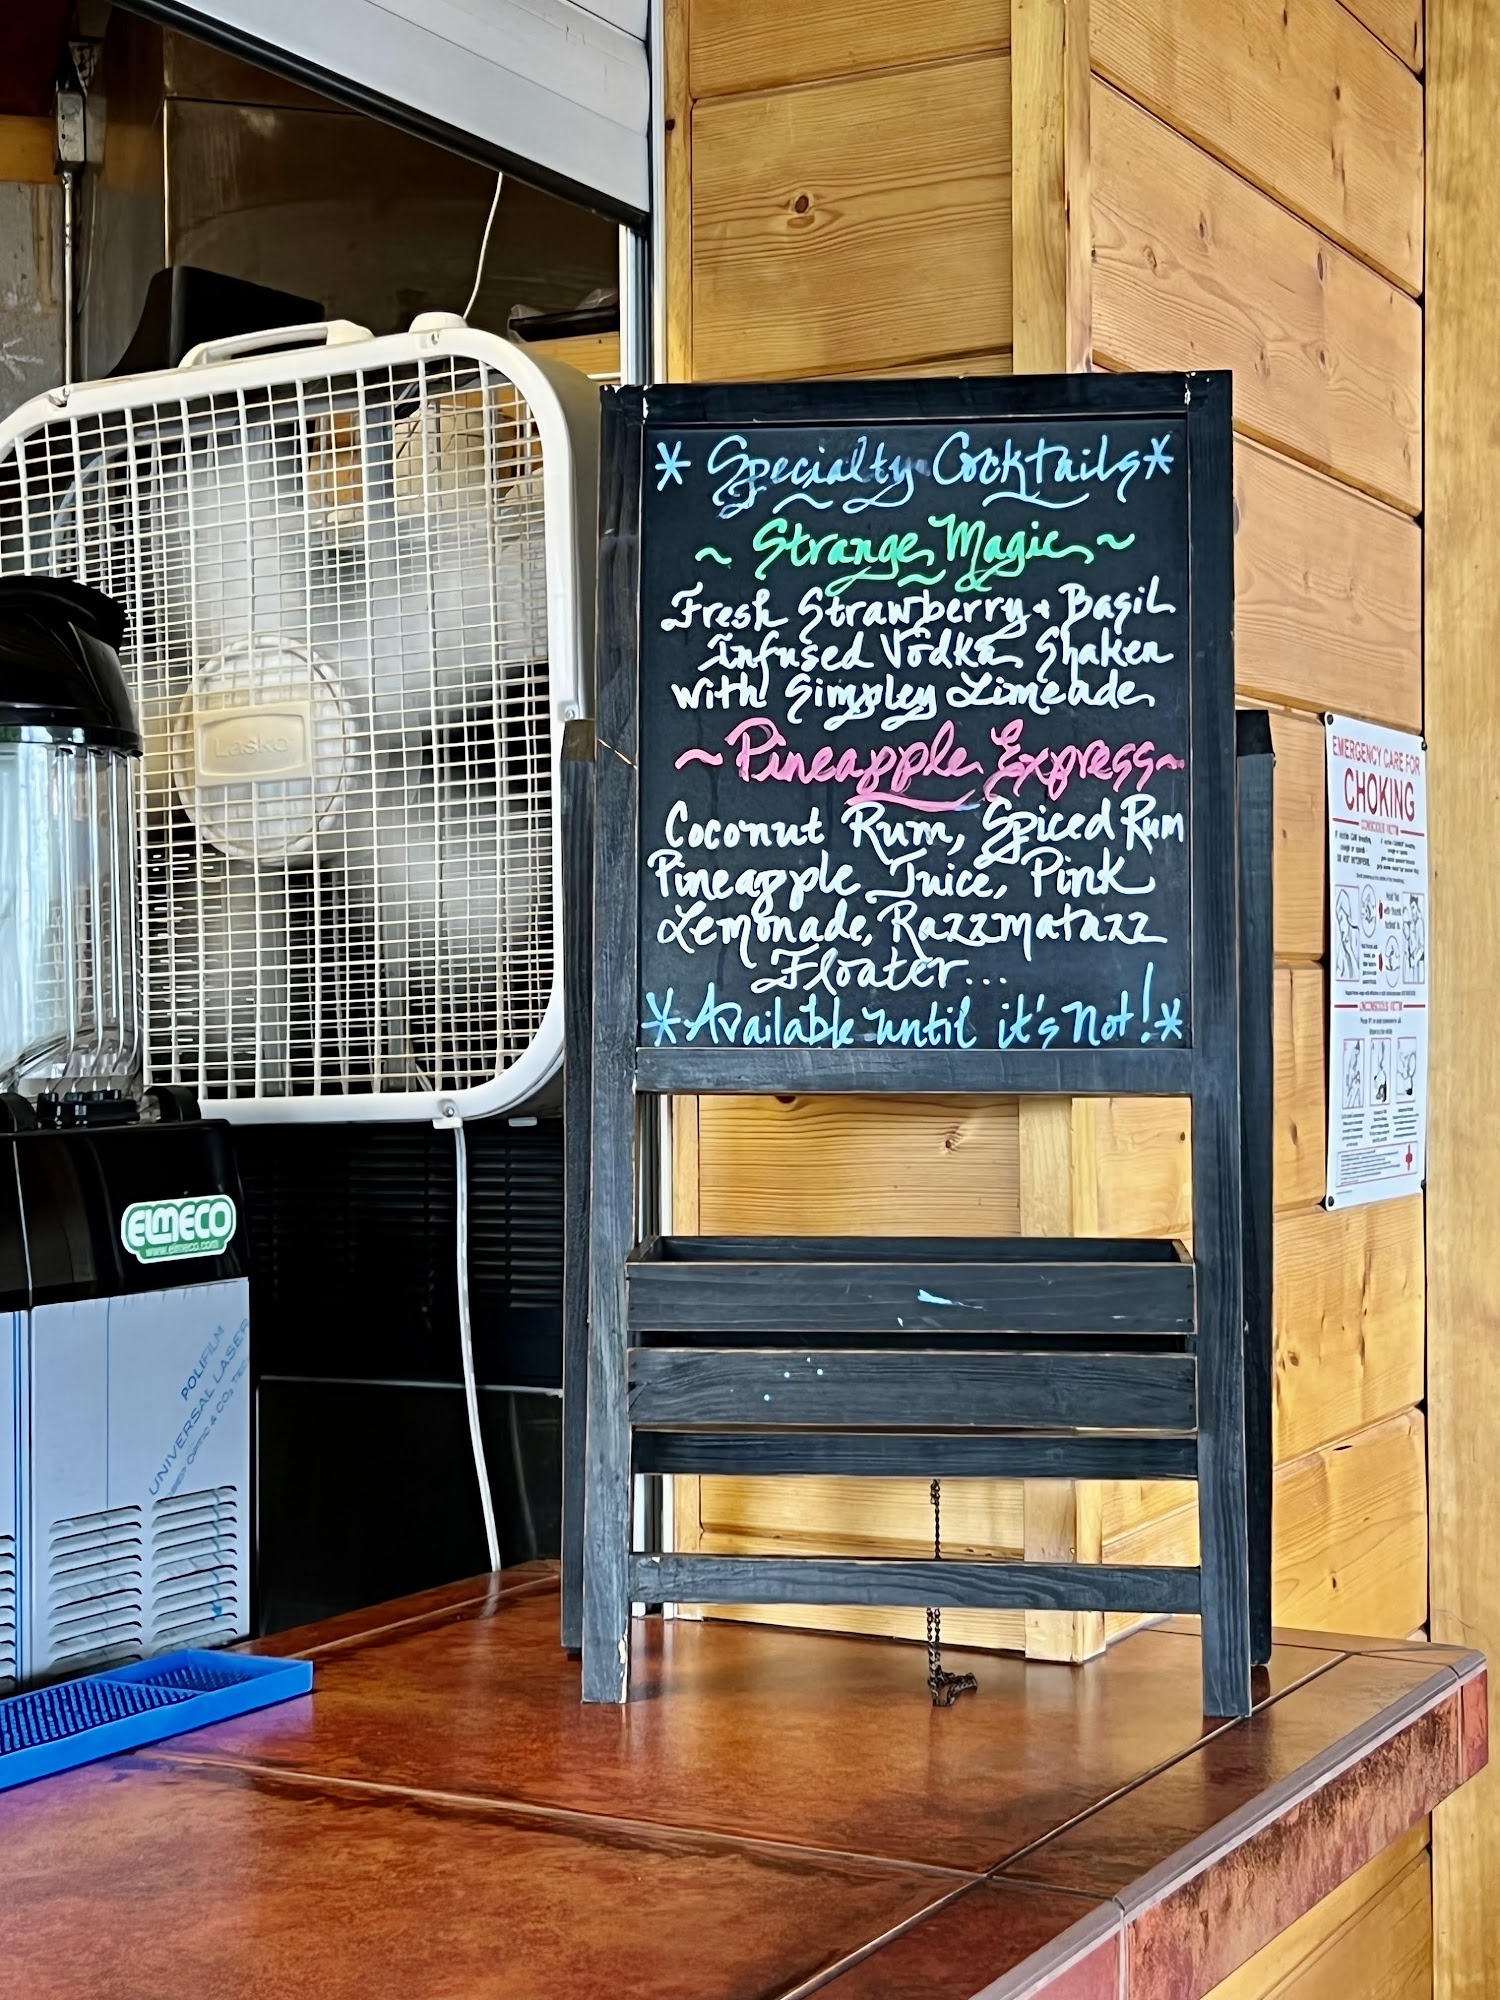 * Specialty Cocktails *
~ Strange Magic ~
Fresh Strawberry + Basil
Infused Vodka Shaken
with Simpley Limeade
~ Pineapple Express ~
Coconut Rum, Spiced Rum
Pineapple Juice, Pink
Lemonade, Razzmatazz
Floater...
* Available until it's not! *
Lasko
ELMECO
www.elmeco.com
POLIFILM
UNIVERSAL LASER
EMERGENCY CARE FOR
CHOKING
CONSCIOUS VICTIM
UNCONSCIOUS VICTIM